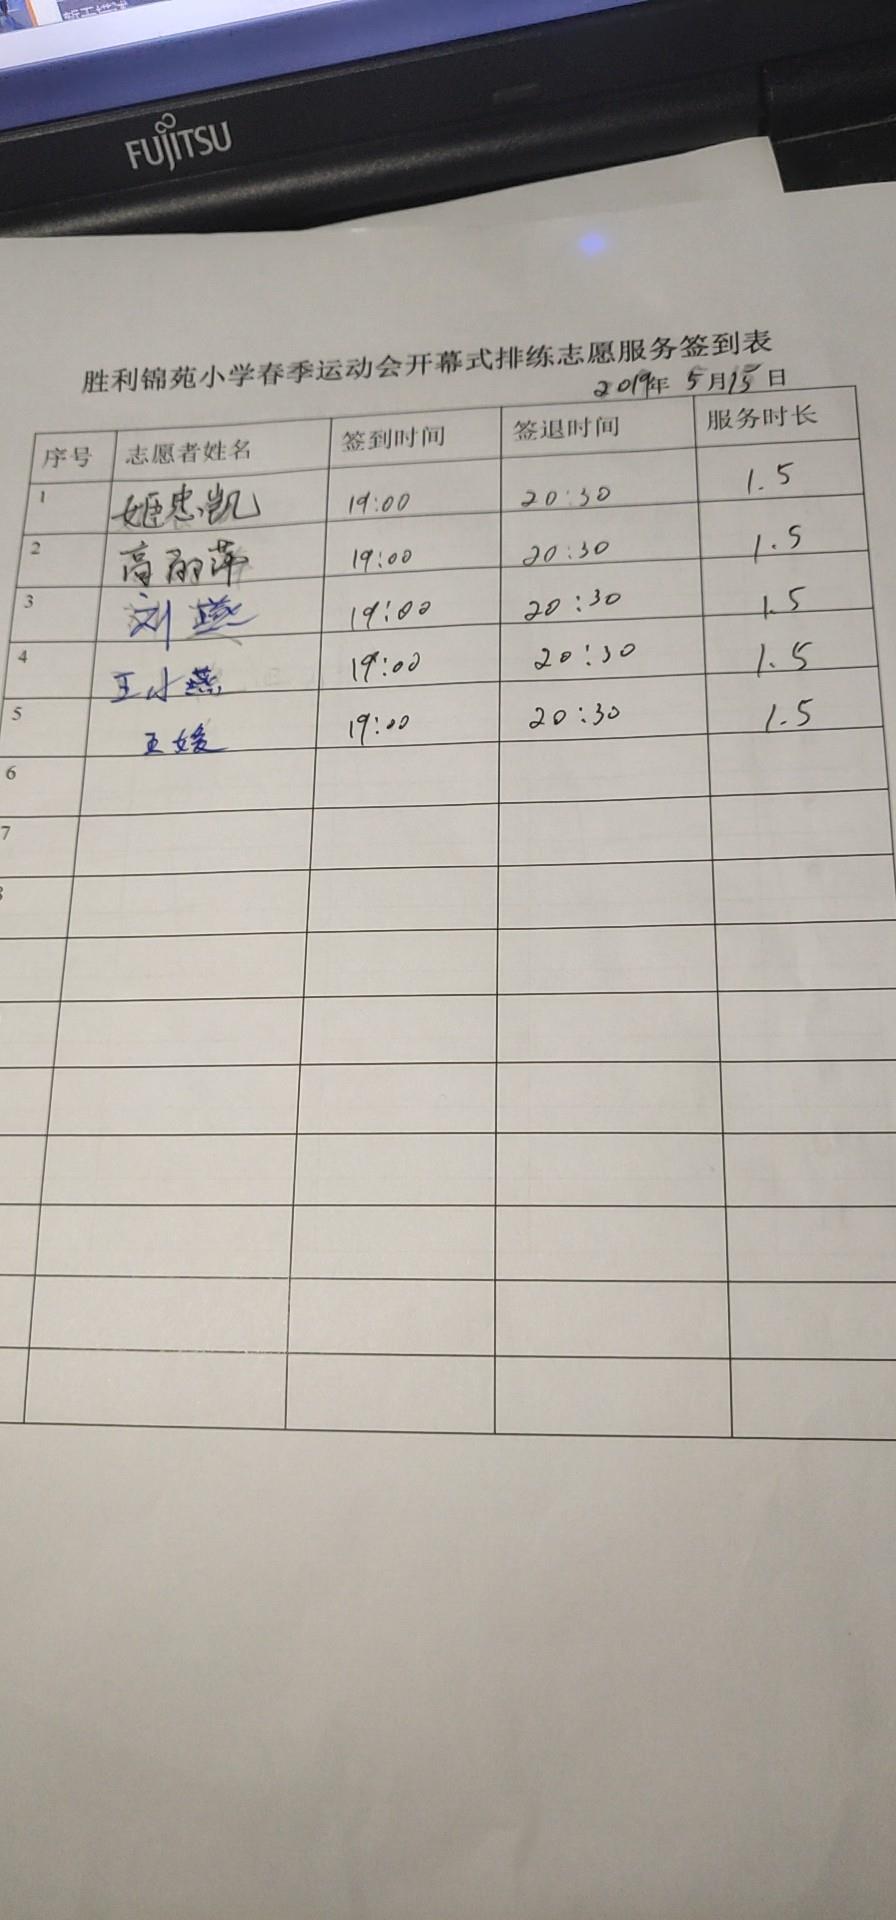 FUJITSU
胜利锦苑小学春季运动会开幕式排练志愿服务签到表
2019年 5月15日
序号 志愿者姓名 签到时间 签退时间 服务时长
1 姬忠凯 19:00 20:30 1.5
2 高丽萍 19:00 20:30 1.5
3 刘燕 19:00 20:30 1.5
4 王小燕 19:00 20:30 1.5
5 王媛 19:00 20:30 1.5
6
7